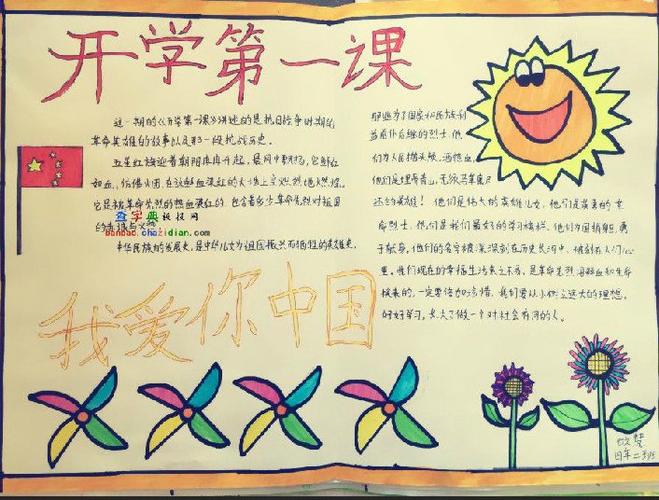 开学第一课
这一期的《开学第一课》讲述的是抗日战争时期的
革命英雄的故事以及那一段抗战历史。
五星红旗迎着朝阳冉冉升起,晨风中飘扬,它鲜红
如血,仿佛火团,在这鲜血浸红的大地上空
它是被革命先烈的热血染红的,包含着多少革命先烈对祖国
的
查字典板报网
banbao.chazidian.com
中华民族的发展史,是中华儿女为祖国振兴而牺牲的英雄史。
那些为了国家和民族利
益前仆后继的烈士,他
们为人民抛头颅,洒热血,
他们是埋骨青山,无
还的英雄!他们是伟大的英雄儿女,他们是英勇的革
命烈士,他们是我们最好的学习榜样。他们为国捐躯,勇
于献身,他们的名字被深深刻在历史长河中,被刻在人们心
里。我们现在的幸福生活来之不易,是革命先烈用鲜血和生命
换来的,一定要倍加珍惜,我们要从小树立远大的理想,
好好学习,长大了做一个对社会有用的人。
我爱你中国
四年二班